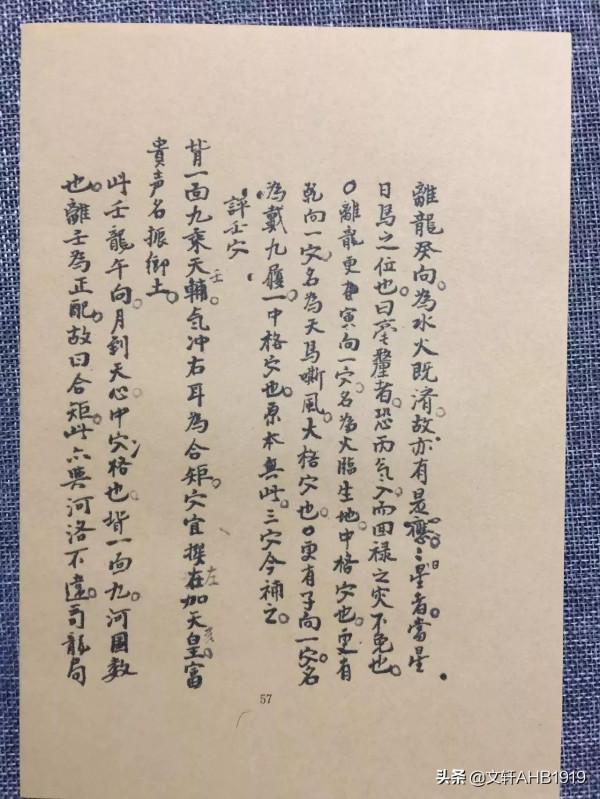 離龍癸向。為水火既濟。故亦有是應。星者。當星
日馬之位也。曰毫釐者。恐丙氣入。而回祿之災不免也。
○離龍更有寅向一穴。名為火臨生地中格穴也。更有
乾向一穴。名為天馬嘶風。大格穴也。○更有子向一穴。名
為戴九履一中格穴也。原本無此三穴今補之。
評壬穴
背一面九乘天輔。壬氣冲右耳為合矩。穴宜撰在左加天皇。亥富
貴声名振鄉土。
此壬龍午向。月到天心中穴格也。背一面九。河圖數
也。離壬為正配。故曰合矩。此亦與河洛不遠。司龍局
57
头条 @文轩AHB1919